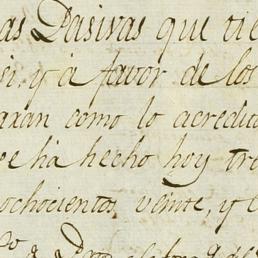 as Pasivas que tie
si, y á favor de los
axan como lo acredita
se ha hecho hoy tre
ochocientos veinte, y